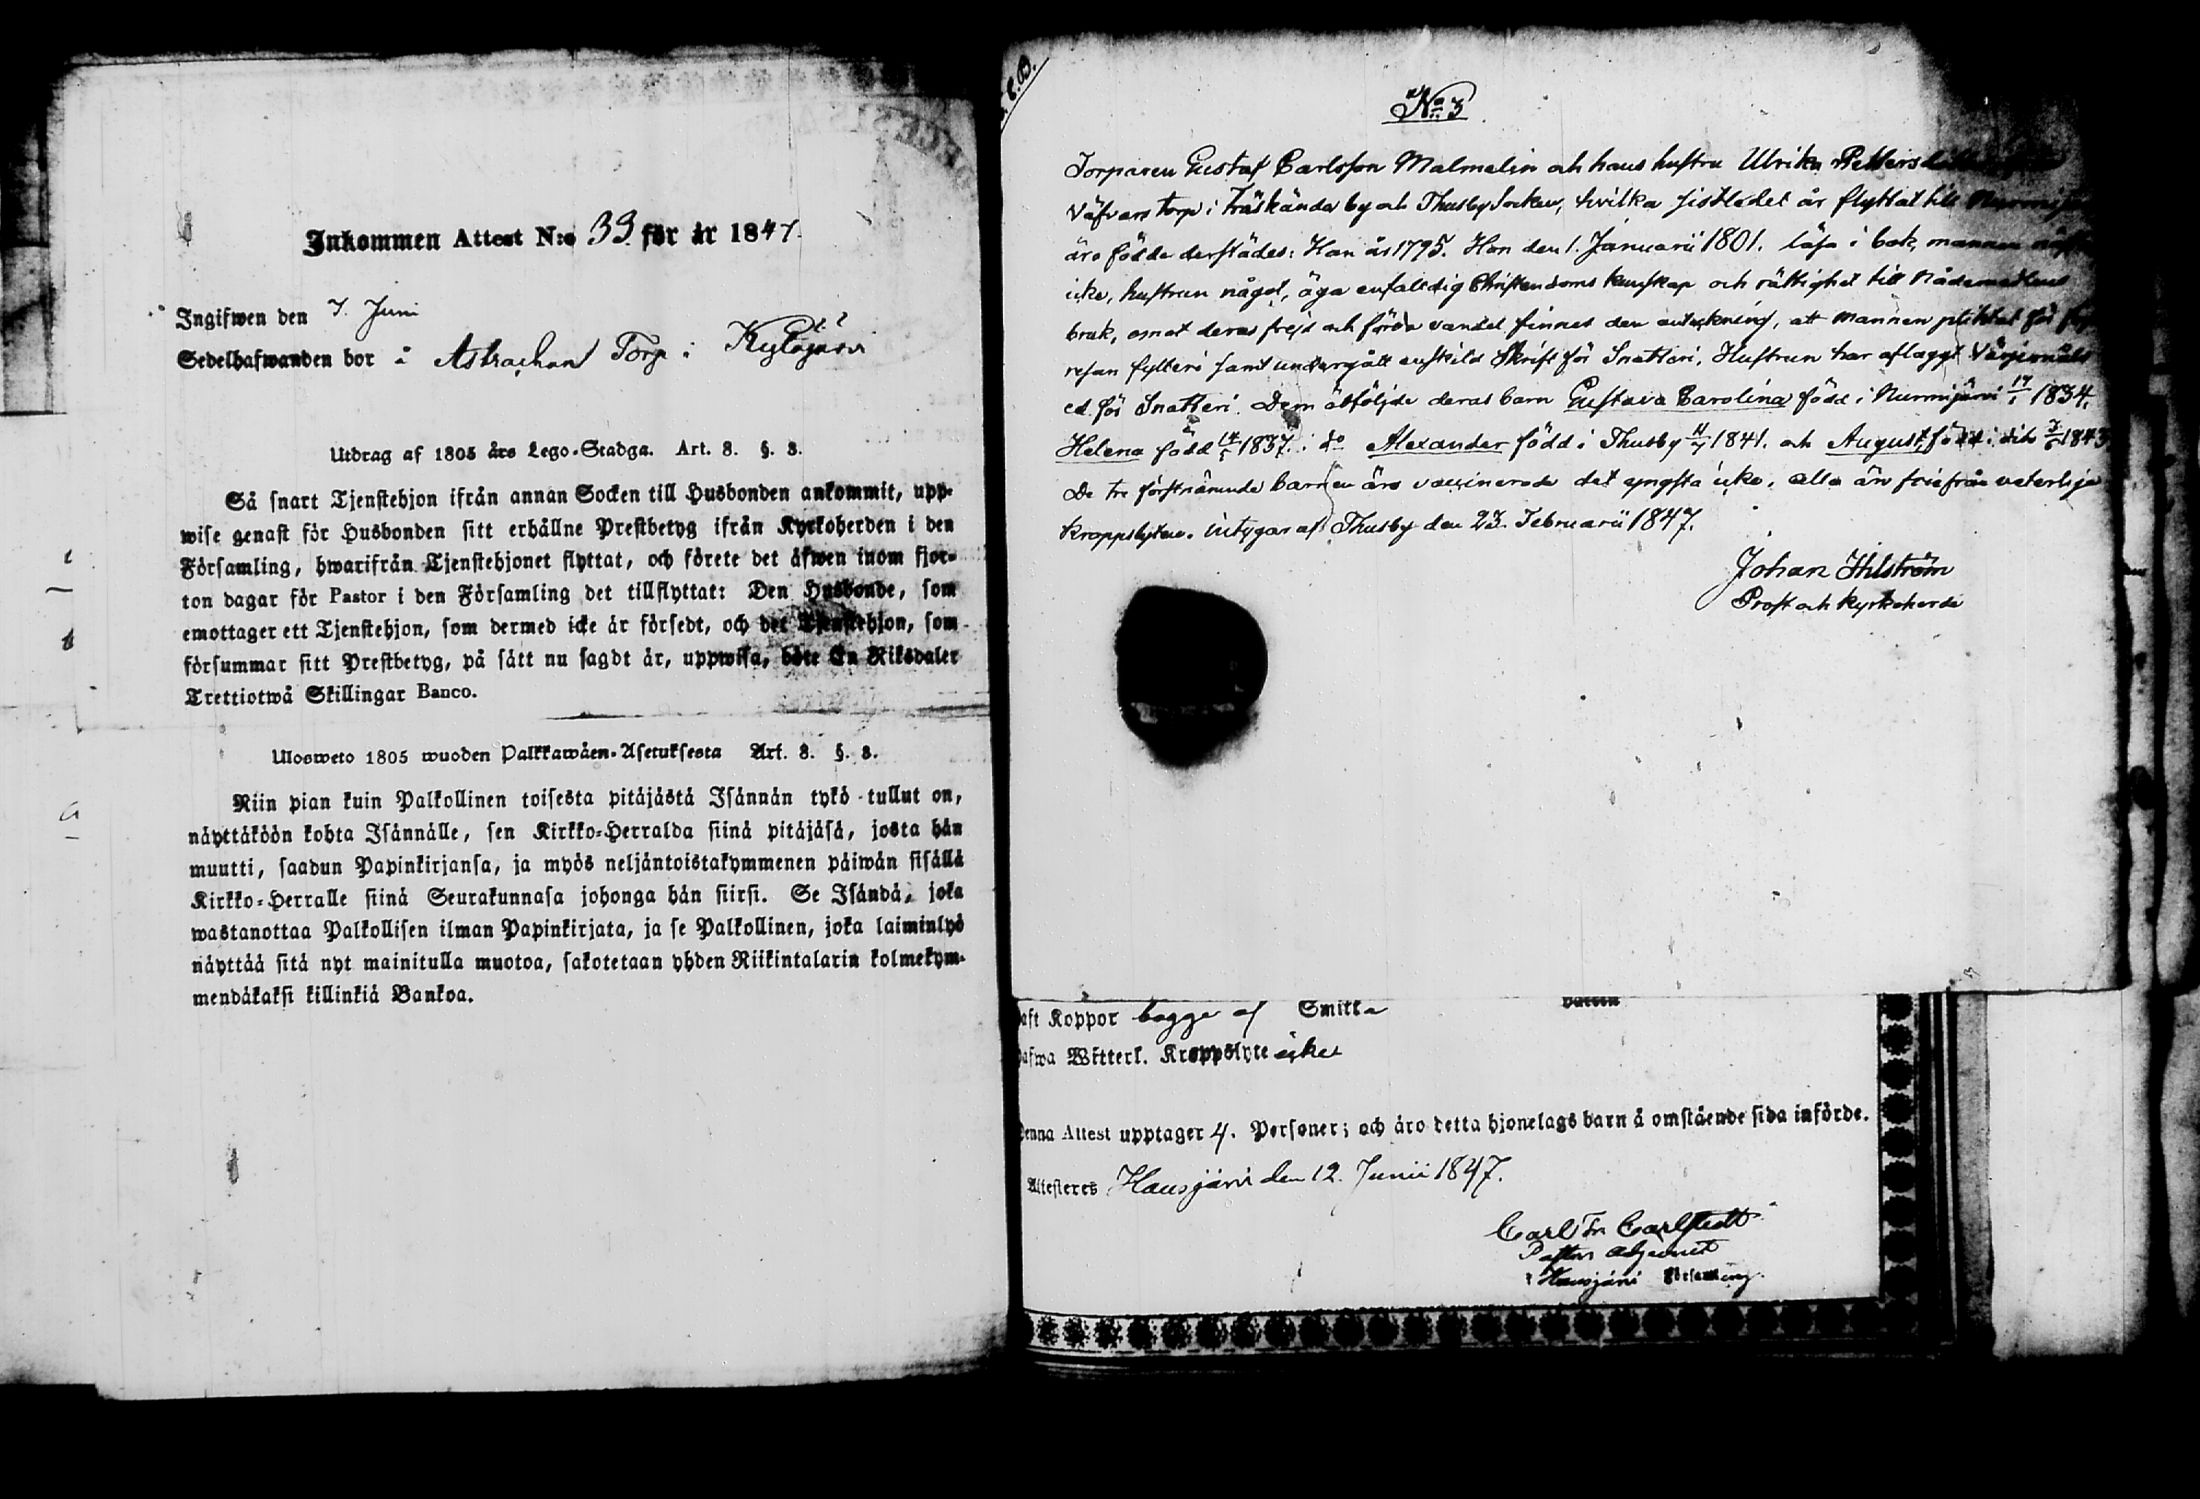 Inkommen Attest N:o 33 för år 1847.
Ingifwen den 7. Juni
Sedelhafwanden bor å Astrachan Torp i Kytöjärvi
Utdrag af 1805 års Lego-Stadga. Art. 8. §. 8.
Så snart Tjenstehjon ifrån annan Socken till Husbonden ankommit, upp-
wise genast för Husbonden sitt erhållne Prestbetyg ifrån Kyrkoherden i den
Församling, hwarifrån Tjenstehjonet flyttat, och förete det äfwen inom fjor-
ton dagar för Pastor i den Församling det tillflyttat: Den Husbonde, som
emottager ett Tjenstehjon, som dermed icke är försedt, och det Tjenstehjon, som
försummar sitt Prestbetyg, på sätt nu sagdt är, uppwisa, böte En Riksdaler
Trettiotwå Skillingar Banco.
Ulosweto 1805 wuoden Palkkawäen-Asetuksesta Art. 8. §. 8.
Niin pian kuin Palkollinen toisesta pitäjästä Isännän tykö tullut on,
näyttäköön kohta Isännälle, sen Kirkko-Herralda siinä pitäjäsä, josta hän
muutti, saadun Papinkirjansa, ja myös neljäntoistakymmenen päiwän sisällä
Kirkko-Herralle siinä Seurakunnasa johonga hän siirsi. Se Isändä, joka
wastanottaa Palkollisen ilman Papinkirjata, ja se Palkollinen, joka laiminlyö
näyttää sitä nyt mainitulla muotoa, sakotetaan yhden Riikintalarin kolmekym-
mendäkaksi killinkiä Bankoa.
No 3
Torparen Gustaf Carlsson Malmelin och hans hustru Ulrika Pettersdotter
Väfvars torp i Träskända by och Thusby Socken, hvilka sistledet år flyttat till Nurmijärvi
äro födde derstädes: Han år 1795. Hon den 1. Januarii 1801. läsa i bok, mannen
icke, hustrun något, äga enfaldig Christendoms kunskap och rättighet till Nådemedlens
bruk, emot deras frejd och förda vandel finnes den anteckning, att mannen pliktat för
resan fylleri samt undergått enskild Skrift för Snatteri. Hustrun har aflaggt Värjemåls
ed för Snatteri. Dem åtfölja deras barn Gustava Carolina född i Nurmijärvi 17/1 1834.
Helena född 14/5 1837. i do Alexander född i Thusby 11/7 1841. och August född i dito 3/6 1843
De tre förstnämnde barnen äro vaccinerade det yngsta icke. alla än frie från veterlige
kroppslyten. intygar af Thusby den 23. Februarii 1847.
Johan Hilström
Prost och Kyrkoherde
haft Koppor bägge af Smitta
hafwa Witterl. Kroppslyte icke
Denna Attest upptager 4. Personer; och äro detta hjonelags barn å omstående sida införde.
Attesteres Hausjärvi den 12. Junii 1847.
Carl Fr. Carlstedt
Pastors adjunct
i Hausjärvi Församling.